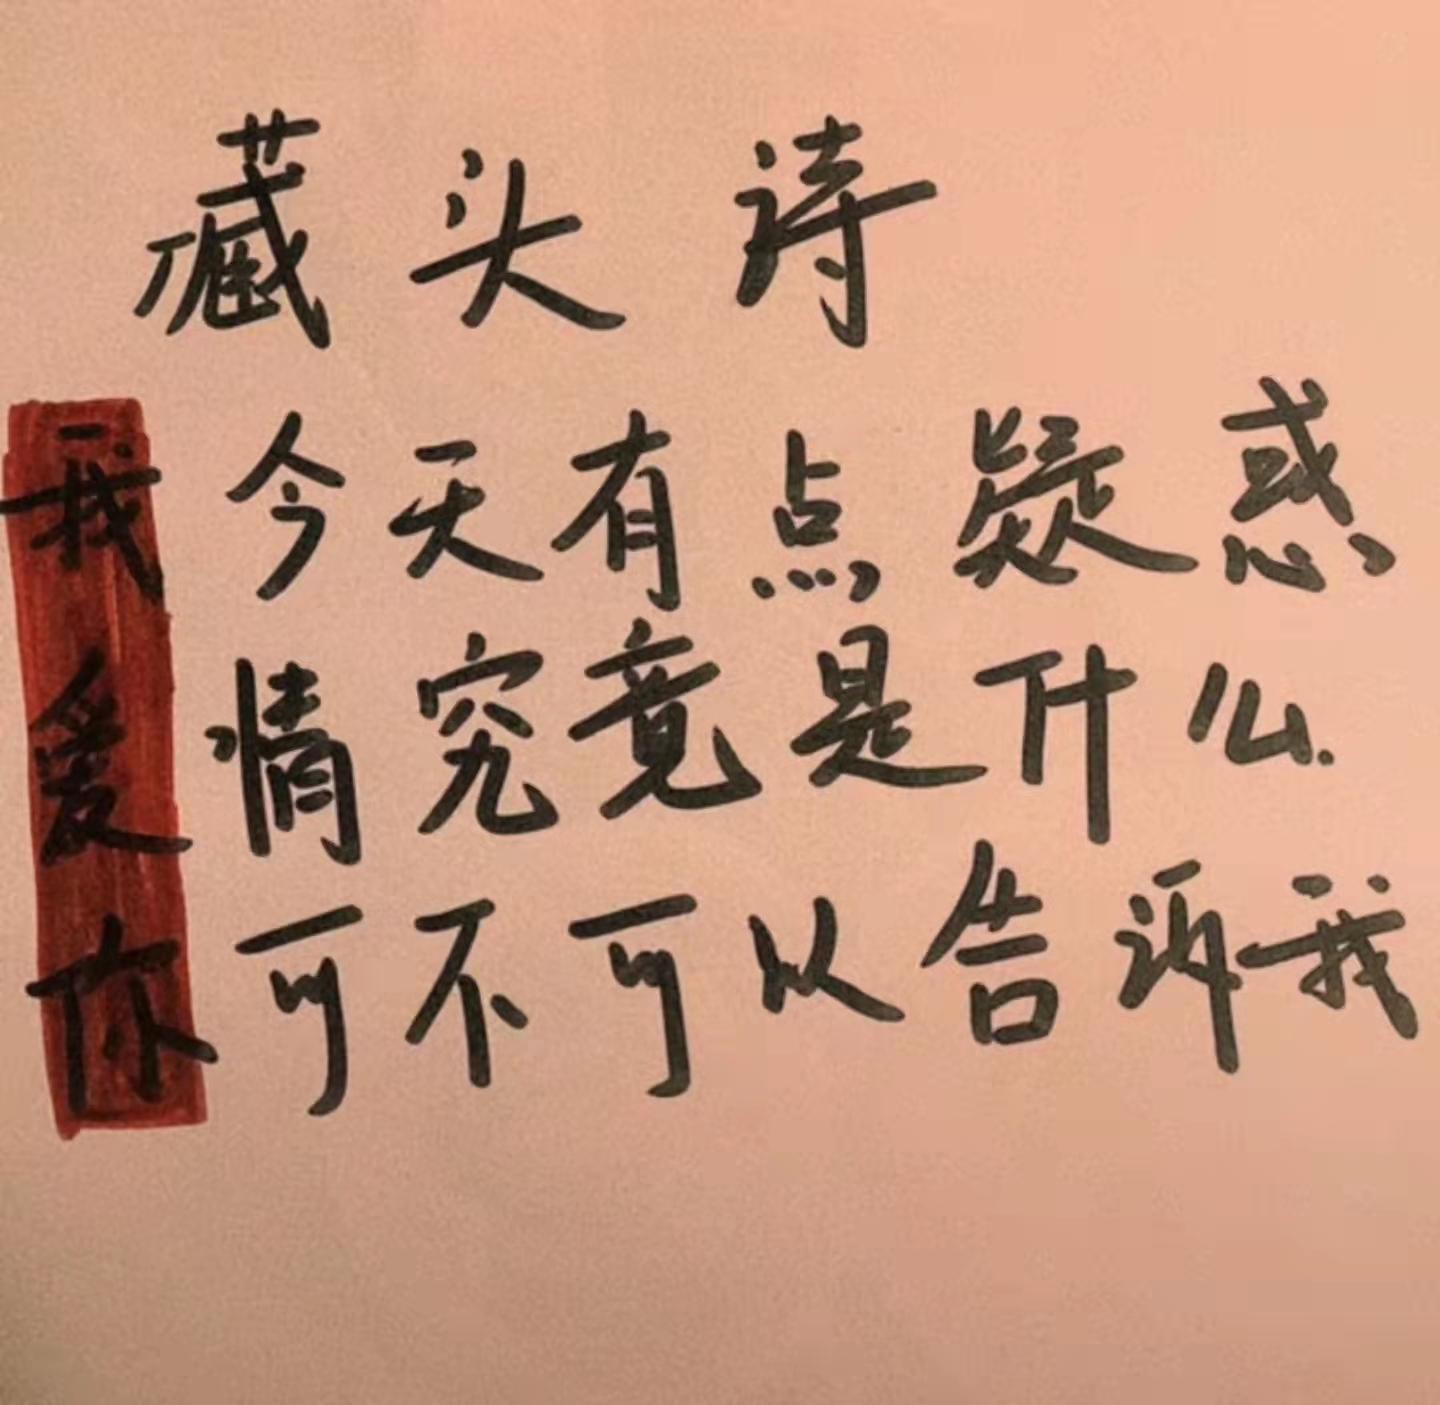 藏头诗
我今天有点疑惑
爱情究竟是什么
你可不可以告诉我